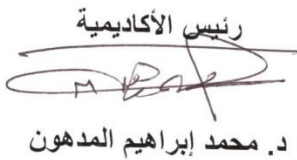 رئيس الأكاديمية
د. محمد إبراهيم المدهون